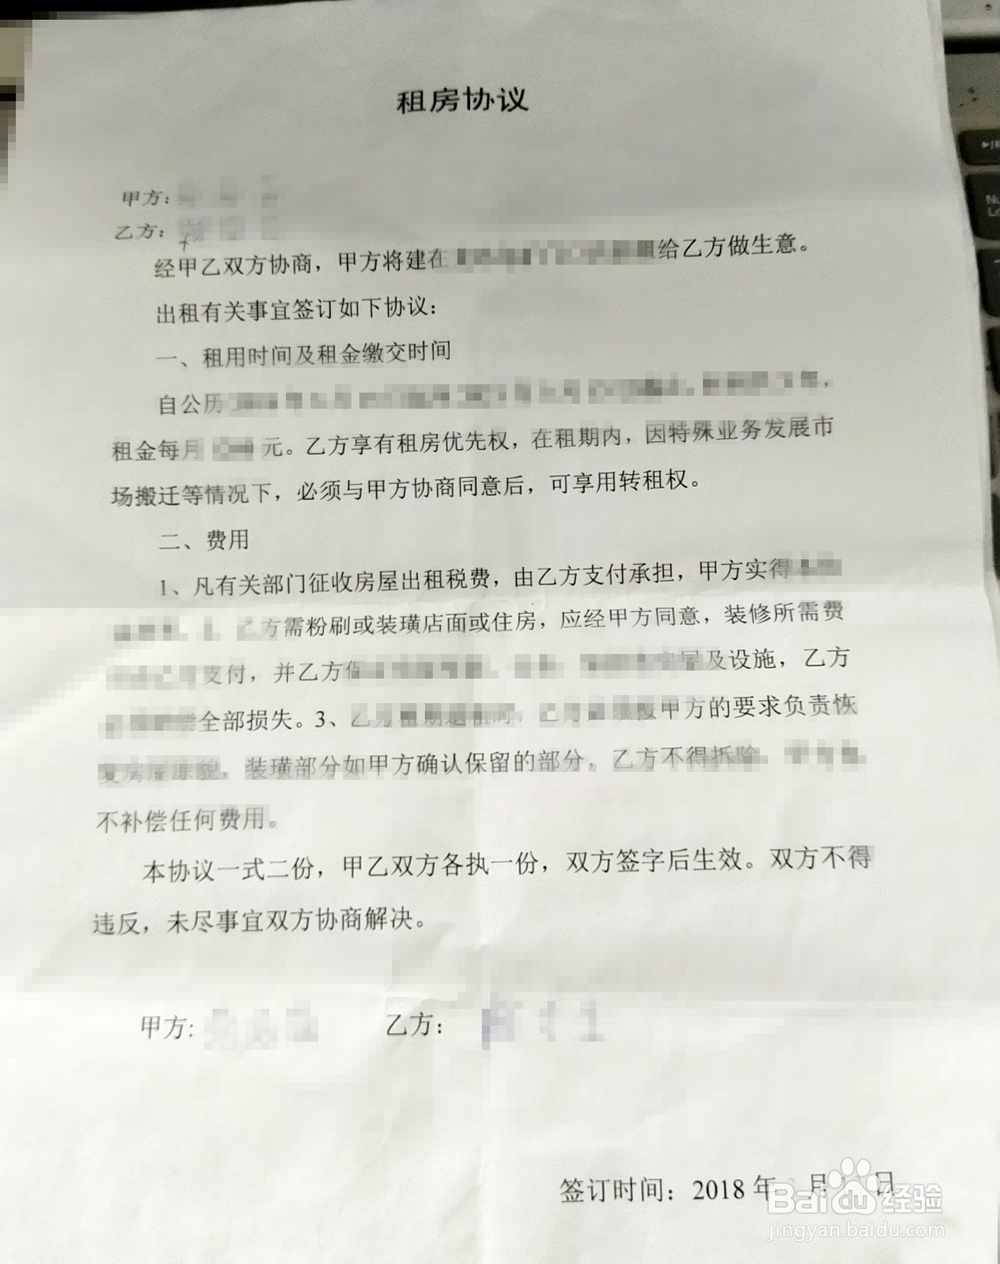 租房协议
甲方：
乙方：
经甲乙双方协商，甲方将建在 给乙方做生意。
出租有关事宜签订如下协议：
一、租用时间及租金缴交时间
自公历
租金每月 元。乙方享有租房优先权，在租期内，因特殊业务发展市
场搬迁等情况下，必须与甲方协商同意后，可享用转租权。
二、费用
1、凡有关部门征收房屋出租税费，由乙方支付承担，甲方实得
乙方需粉刷或装璜店面或住房，应经甲方同意，装修所需费
支付，并乙方 及设施，乙方
全部损失。3、乙方 甲方的要求负责恢
复房屋原貌，装璜部分如甲方确认保留的部分，乙方不得拆除
不补偿任何费用。
本协议一式二份，甲乙双方各执一份，双方签字后生效。双方不得
违反，未尽事宜双方协商解决。
甲方: 乙方：
签订时间：2018年 月 日
Baidu经验
jingyan.baidu.com